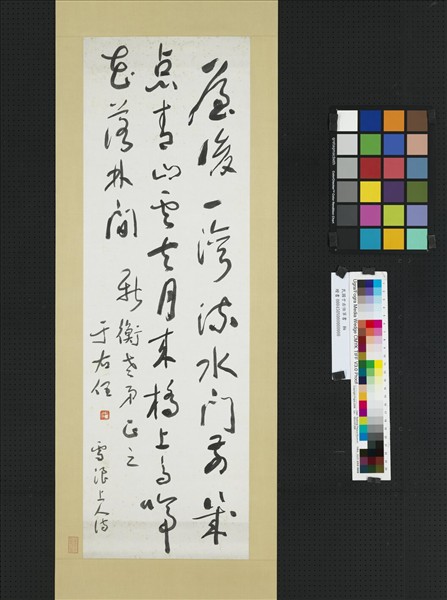 屋後一灣流水門前幾
点青山雲去月來橋上鳥啼
花落林間
新衡老弟正之
于右任
雪浪上人詩
Ugra/Fogra Media Wedge CMYK